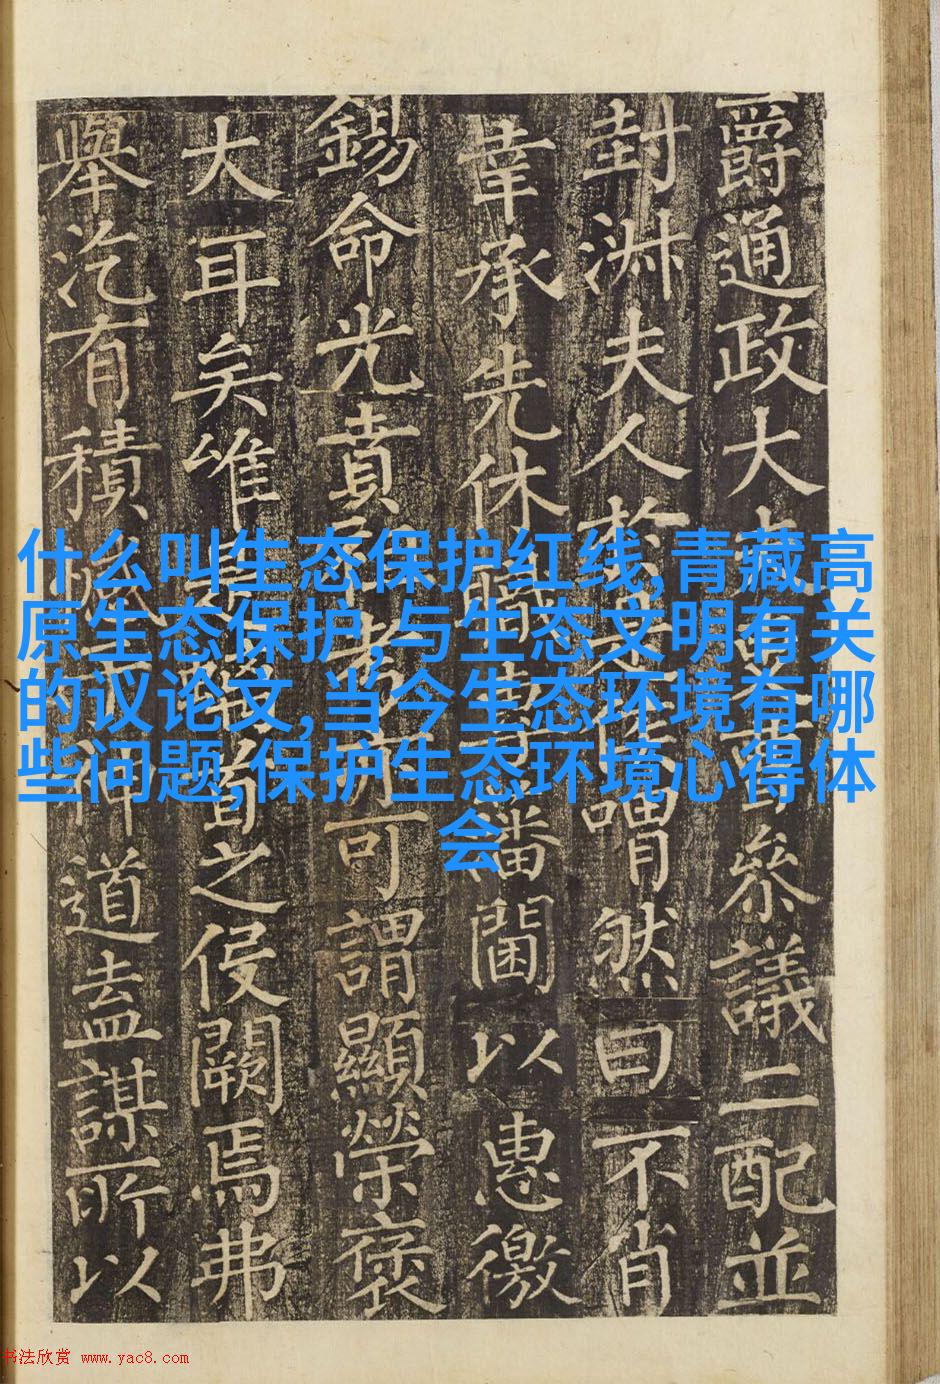 爵通政大參議二配並
封淑夫人於喟然曰不肖
幸承先休職藩閫以惠徼
錫命光賁可謂顯榮褒
大耳矣唯之侵闕焉弗
舉汔有積神道盍謀所以
什么叫生态保护红线,青藏高
原生态保护,与生态文明有关
的议论文,当今生态环境有哪
些问题,保护生态环境心得体
会
书法欣赏 www.yac8.com